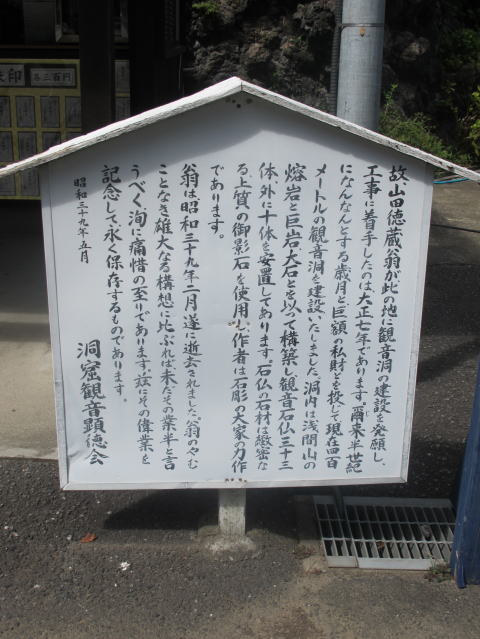 故山田徳蔵翁が此の地に観音洞の建設を発願し、
工事に着手したのは、大正七年であります。爾来半世紀
になんなんとする歳月と巨額の私財を投じて現在四百
メートルの観音洞を建設いたしました。洞内は浅間山の
熔岩と巨岩、大石とを以って構築し、観音石仏三十三
体外に十体を安置してあります。石仏の石材は緻密な
る上質の御影石を使用し、作者は石彫の大家の力作
であります。
翁は昭和三十九年二月遂に逝去されました。翁のやむ
ことなき雄大なる構想に比ぶれば未だその業半と言
うべく洵に痛惜の至りであります。玆にその偉業を
記念して、永く保存するものであります。
昭和三十九年五月
洞窟観音顕徳会
印 各三百円